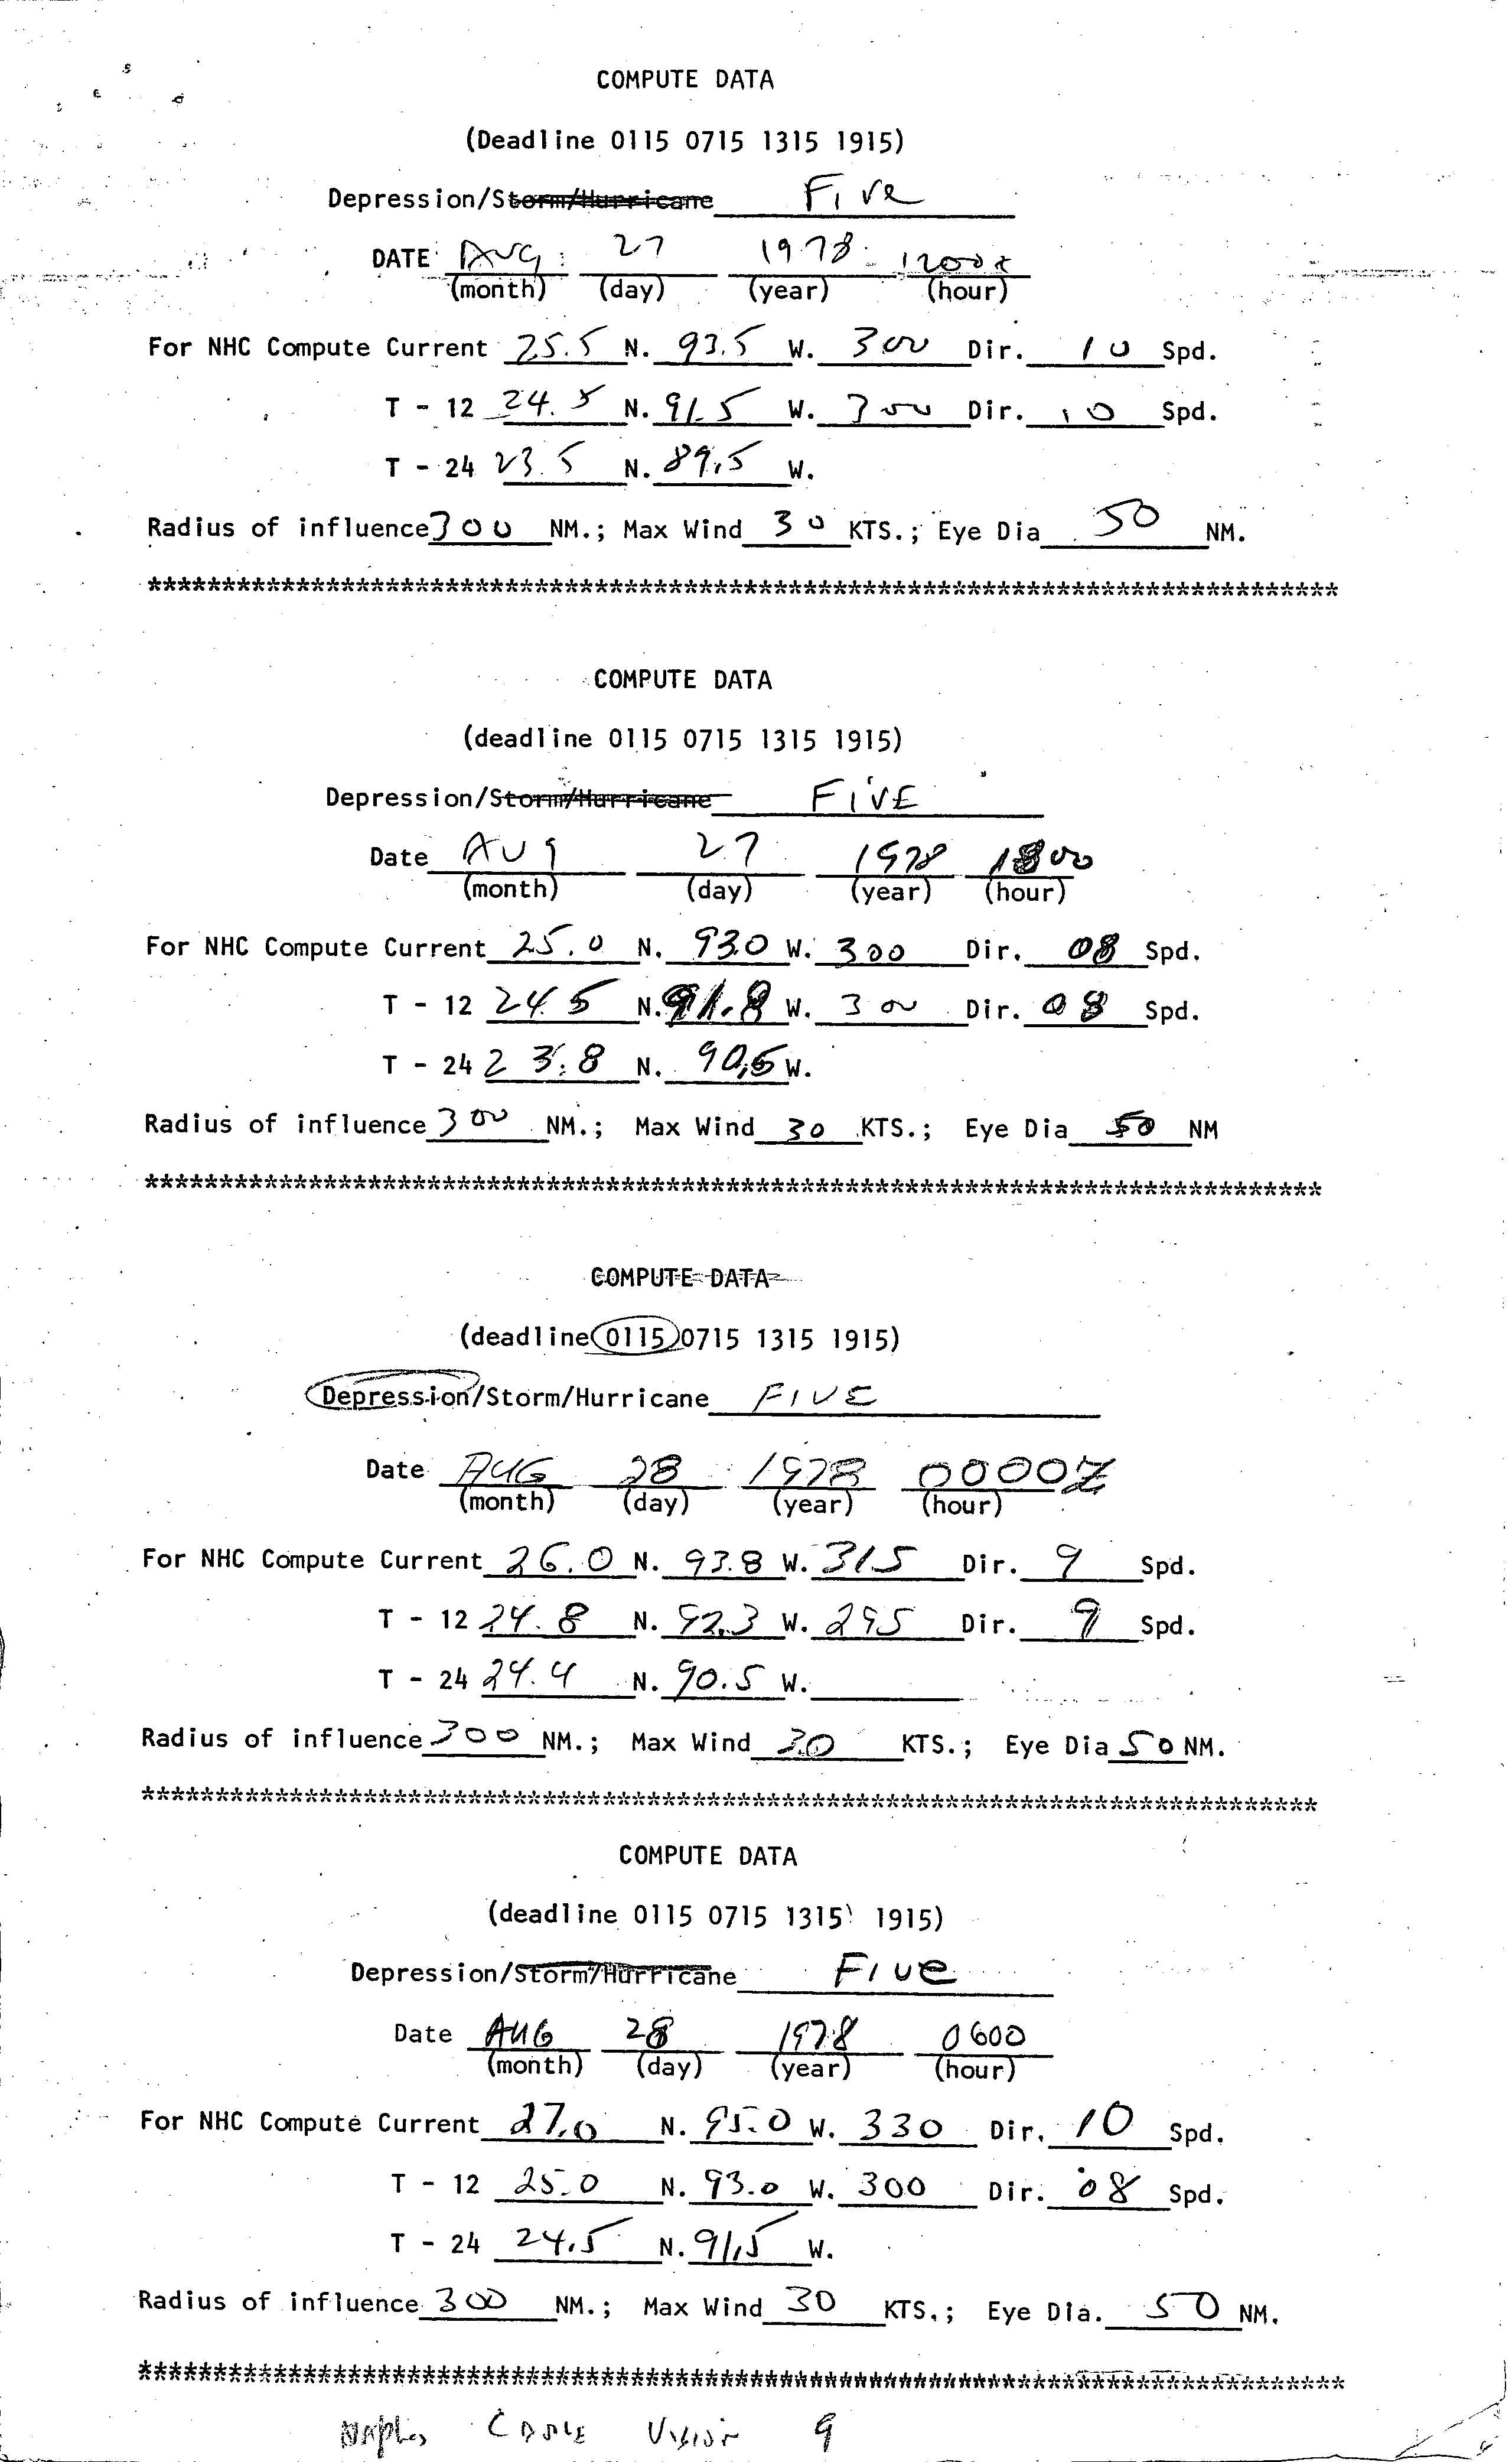 COMPUTE DATA
(Deadline 0115 0715 1315 1915)
Depression/Storm/Hurricane Five
DATE AUG 27 1978 1200Z
(month) (day) (year) (hour)
For NHC Compute Current 25.5 N. 93.5 W. 300 Dir. 10 Spd.
T - 12 24.5 N. 91.5 W. 300 Dir. 10 Spd.
T - 24 23.5 N. 89.5 W.
Radius of influence 300 NM.; Max Wind 30 KTS.; Eye Dia 50 NM.
********************************************************************************
COMPUTE DATA
(deadline 0115 0715 1315 1915)
Depression/Storm/Hurricane FIVE
Date AUG 27 1978 1800
(month) (day) (year) (hour)
For NHC Compute Current 25.0 N. 93.0 W. 300 Dir. 08 Spd.
T - 12 24.5 N. 91.8 W. 300 Dir. 08 Spd.
T - 24 23.8 N. 90.5 W.
Radius of influence 300 NM.; Max Wind 30 KTS.; Eye Dia 50 NM
*******************************************************************************
COMPUTE DATA
(deadline 0115 0715 1315 1915)
Depression/Storm/Hurricane FIVE
Date AUG 28 1978 0000Z
(month) (day) (year) (hour)
For NHC Compute Current 26.0 N. 93.8 W. 315 Dir. 9 Spd.
T - 12 24.8 N. 92.3 W. 295 Dir. 9 Spd.
T - 24 24.4 N. 90.5 W.
Radius of influence 300 NM.; Max Wind 30 KTS.; Eye Dia 50 NM.
*******************************************************************************
COMPUTE DATA
(deadline 0115 0715 1315 1915)
Depression/Storm/Hurricane Five
Date AUG 28 1978 0600
(month) (day) (year) (hour)
For NHC Compute Current 27.0 N. 95.0 W. 330 Dir. 10 Spd.
T - 12 25.0 N. 93.0 W. 300 Dir. 08 Spd.
T - 24 24.5 N. 91.5 W.
Radius of influence 300 NM.; Max Wind 30 KTS.; Eye Dia. 50 NM.
*********************************************************************************
Naples CABLE Vision 9